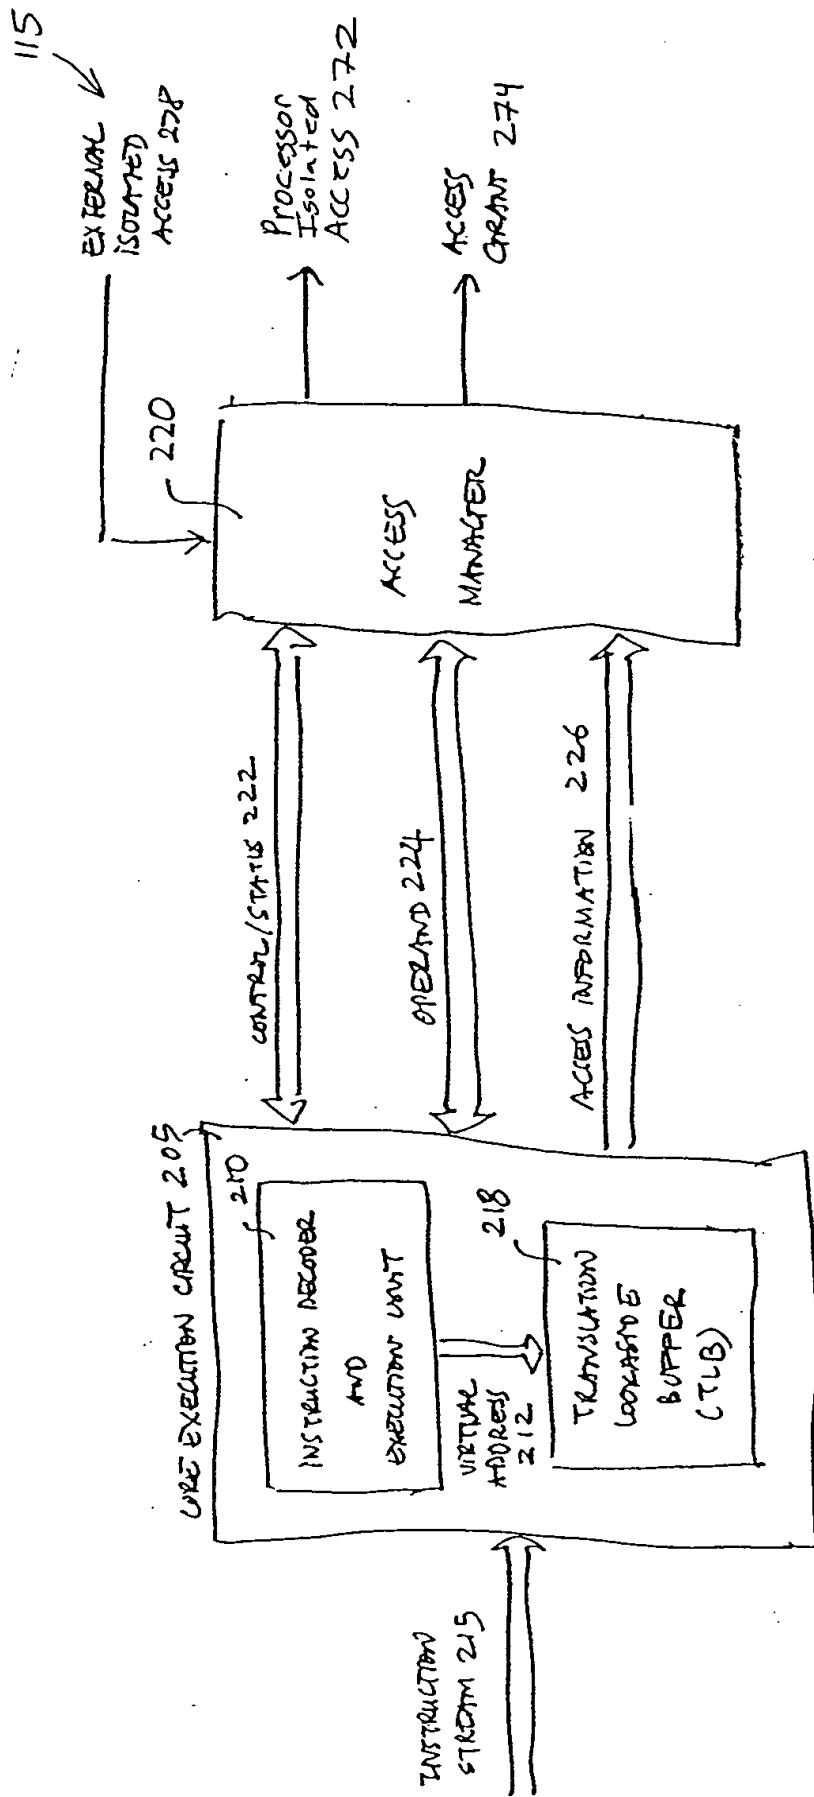 115
EXTERNAL
ISOLATED
ACCESS 278
Processor
Isolated
Access 272
ACCESS
GRANT 274
220
ACCESS
MANAGER
CONTROL/STATUS 222
OPERAND 224
ACCESS INFORMATION 226
CORE EXECUTION CIRCUIT 205
210
INSTRUCTION DECODER
AND
EXECUTION UNIT
VIRTUAL
ADDRESS
212
218
TRANSLATION
LOOKASIDE
BUFFER
(TLB)
INSTRUCTION
STREAM 215